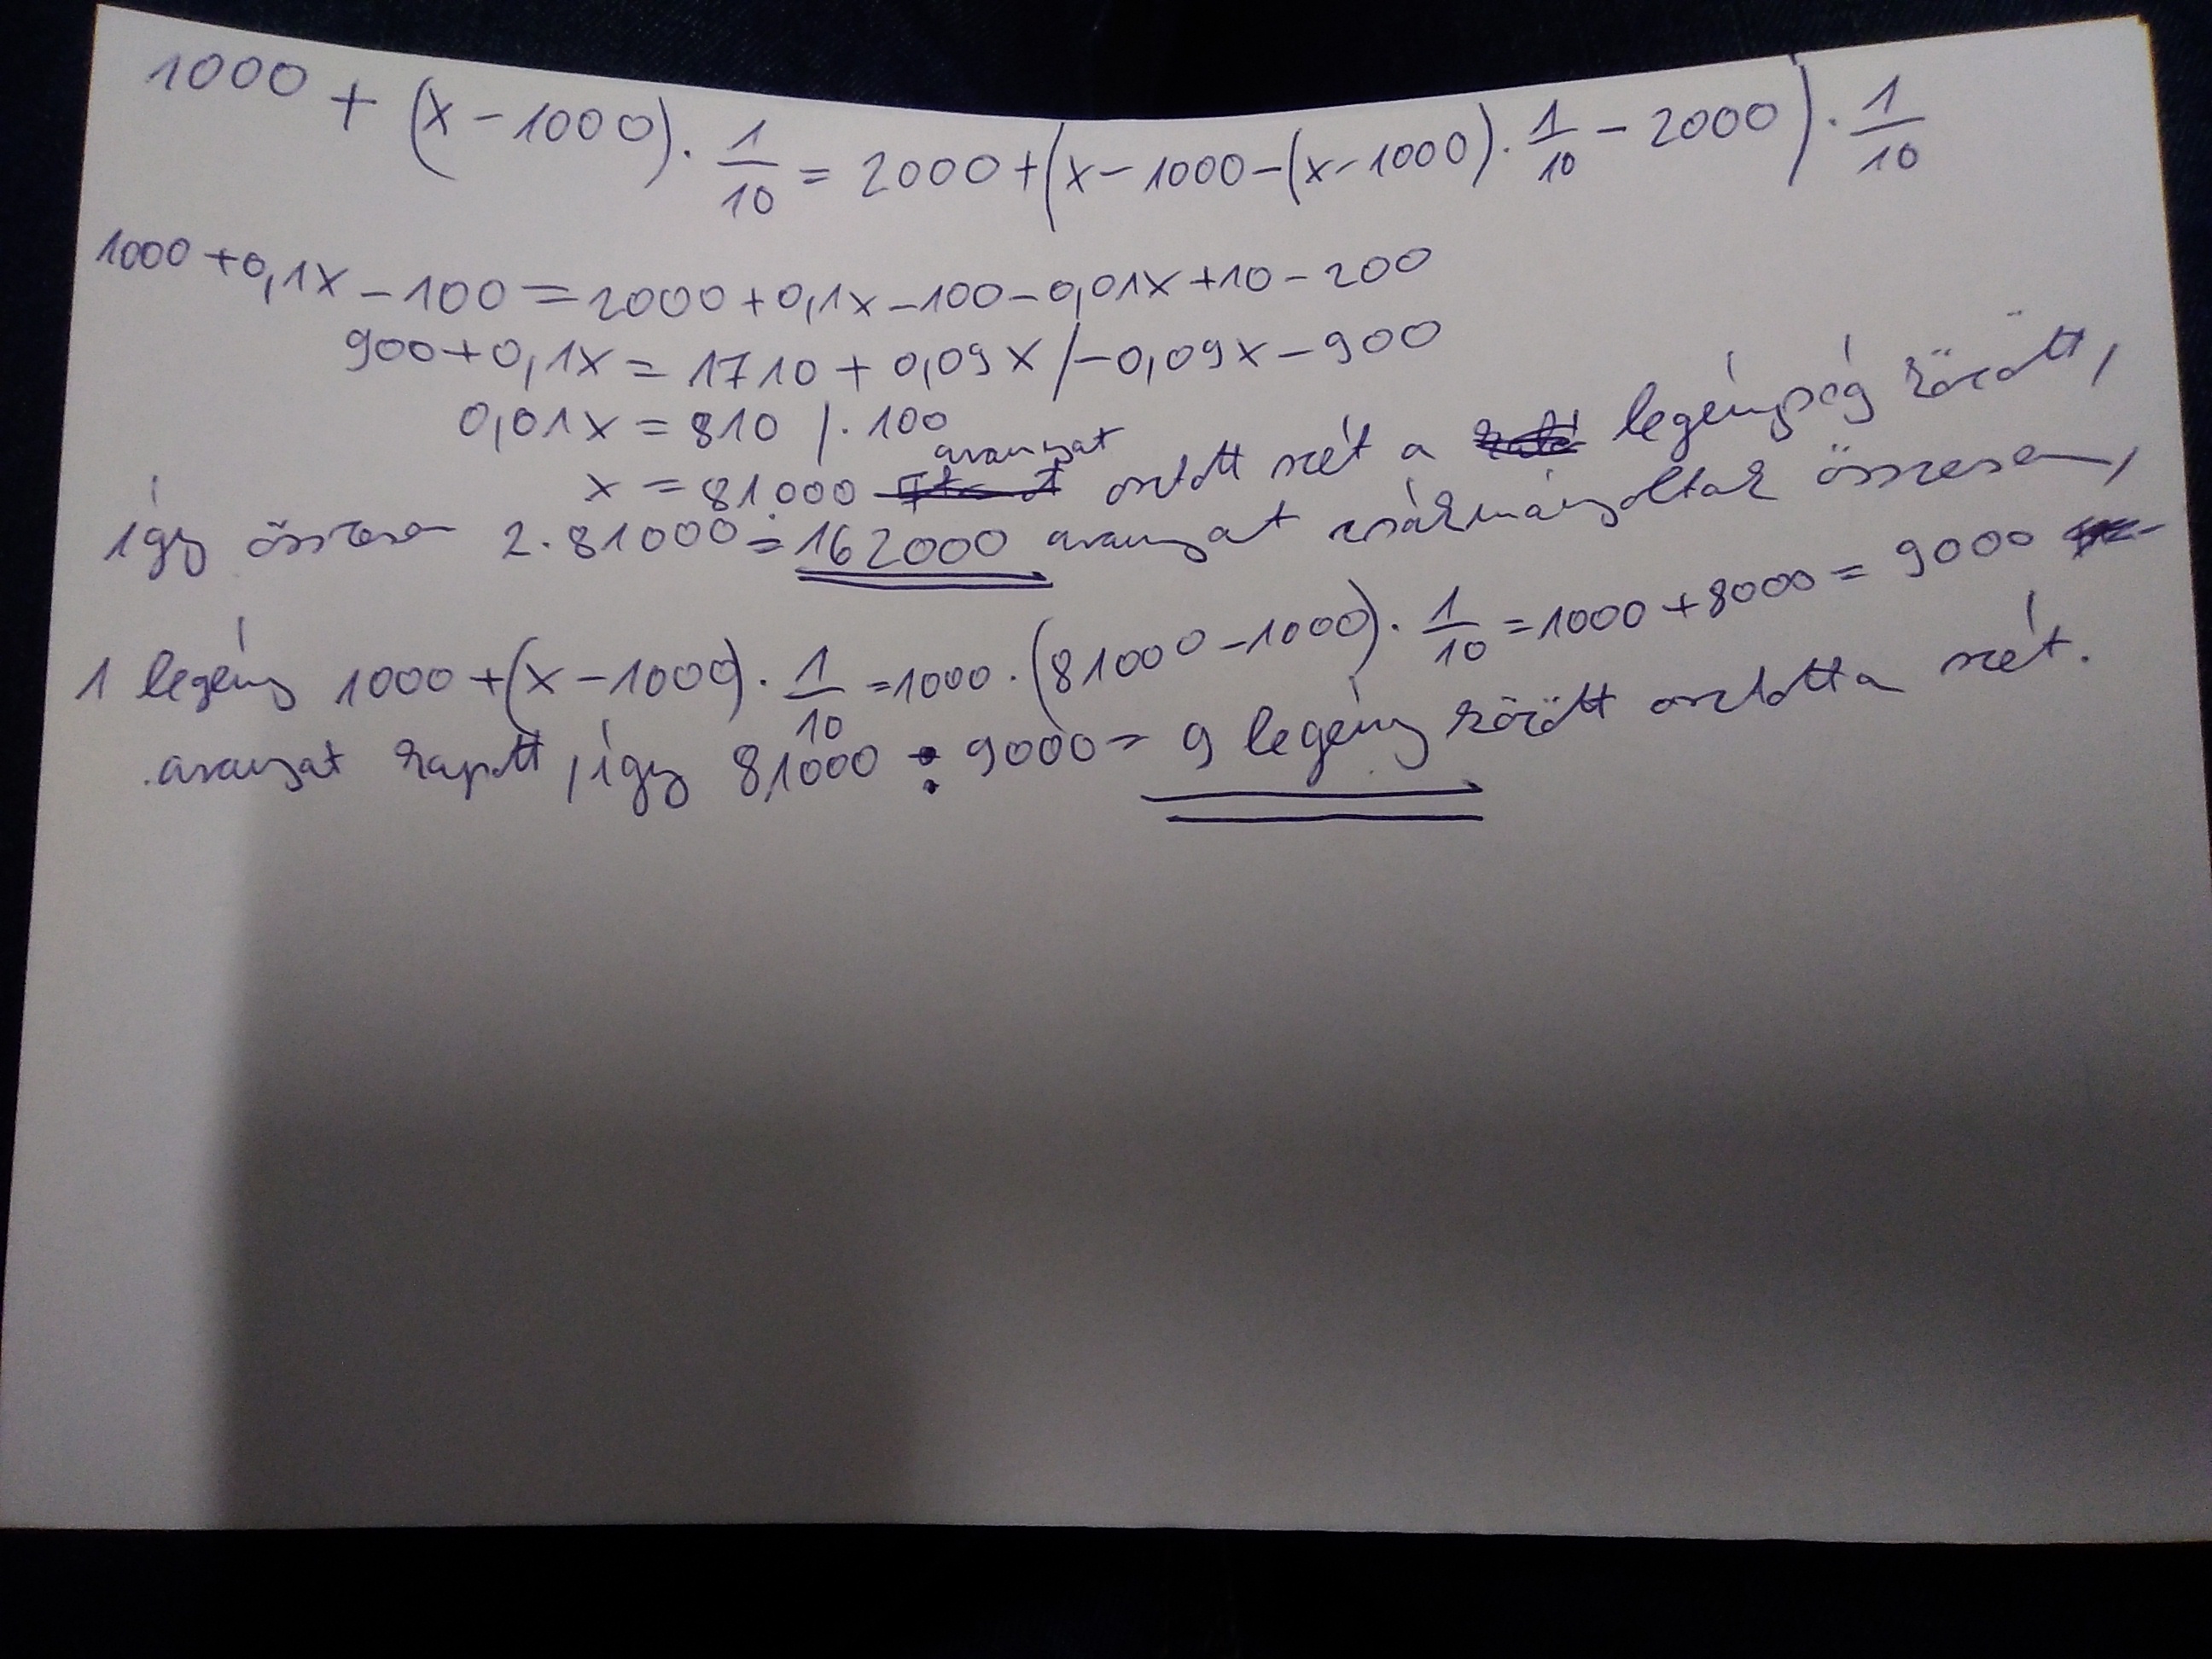 1000 + (x - 1000) · 1/10 = 2000 + (x - 1000 - (x - 1000) · 1/10 - 2000) · 1/10
1000 + 0,1x - 100 = 2000 + 0,1x - 100 - 0,01x + 10 - 200
900 + 0,1x = 1710 + 0,09x /-0,09x - 900
0,01x = 810 /· 100
x = 81000 aranyat osztott szét a legénység között,
így összesen 2 · 81000 = 162000 aranyat zsákmányoltak összesen,
1 legény 1000 + (x - 1000) · 1/10 = 1000 · (81000 - 1000) · 1/10 = 1000 + 8000 = 9000
aranyat kapott, így 81000 : 9000 = 9 legény között osztotta szét.